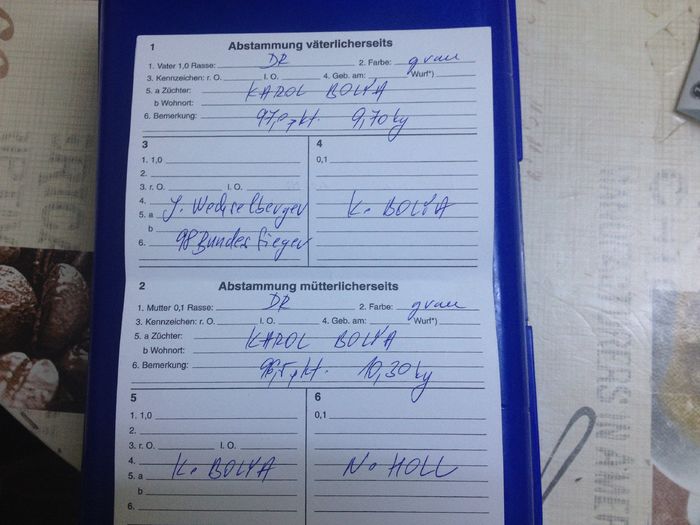 1 Abstammung väterlicherseits
1. Vater 1,0 Rasse: DR 2. Farbe: grau
3. Kennzeichen: r. O. l. O. 4. Geb. am: Wurf*)
5. a Züchter: KAROL BOLYA
b Wohnort:
6. Bemerkung: 97,0 pkt. 9,70 kg
3 4
1. 1,0 0,1
2.
3. r. O. l. O.
4.
5. a J. Wechselberger K. BOLYA
b
6. 98 Bundes Sieger
2 Abstammung mütterlicherseits
1. Mutter 0,1 Rasse: DR 2. Farbe: grau
3. Kennzeichen: r. O. l. O. 4. Geb. am: Wurf*)
5. a Züchter: KAROL BOLYA
b Wohnort:
6. Bemerkung: 96,5 pkt. 10,30 kg
5 6
1. 1,0 0,1
2.
3. r. O. l. O.
4.
5. a K. BOLYA N. HOLL
b
6.